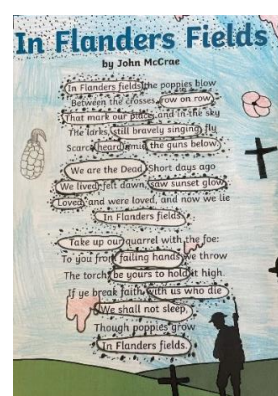 In Flanders Fields
by John McCrae
In Flanders fields the poppies blow
Between the crosses, row on row,
That mark our place; and in the sky
The larks, still bravely singing, fly
Scarce heard amid the guns below.
We are the Dead. Short days ago
We lived, felt dawn, saw sunset glow,
Loved and were loved, and now we lie
In Flanders fields.
Take up our quarrel with the foe:
To you from failing hands we throw
The torch; be yours to hold it high.
If ye break faith with us who die
We shall not sleep,
Though poppies grow
In Flanders fields.